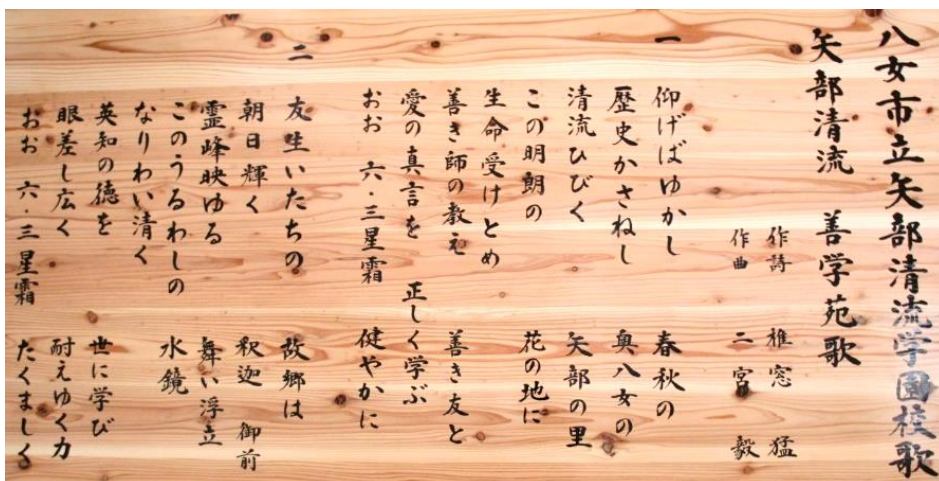 八女市立矢部清流学園校歌
矢部清流 善学苑歌
作詩 椎窓 猛
作曲 二宮 毅
一
仰げばゆかし 春秋の
歴史かさねし 奥八女の
清流ひびく 矢部の里
この明朗の 花の地に
生命受けとめ
善き師の教え 善き友と
愛の真言を 正しく学ぶ
おお 六・三星霜 健やかに
二
友生いたちの 故郷は
朝日輝く 釈迦 御前
霊峰映ゆる 舞い浮立
このうるわしの 水鏡
なりわい清く
英知の徳を 世に学び
眼差し広く 耐えゆく力
おお 六・三星霜 たくましく